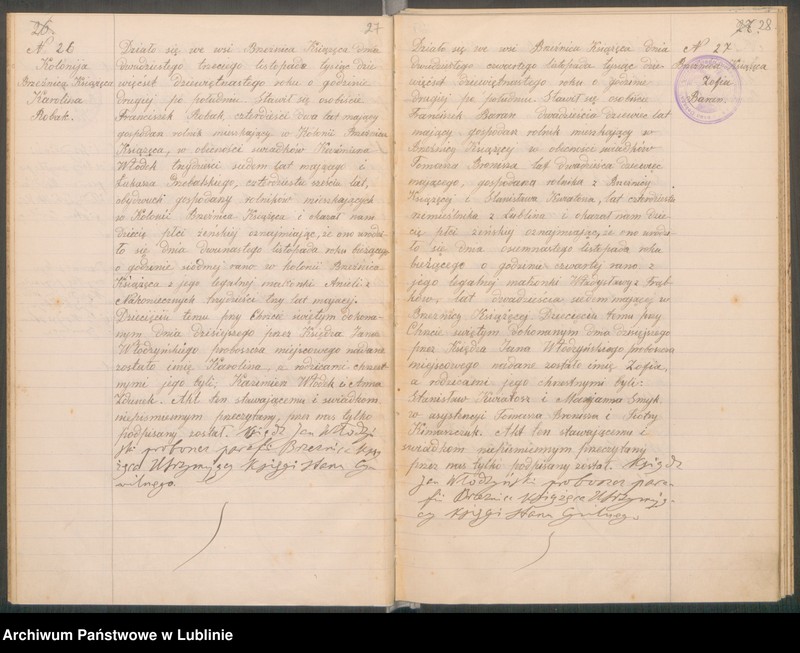 26.
27
N 26
Kolonija
Brzeźnica Książęca
Karolina
Robak.
Działo się we wsi Brzeźnica Książęca dnia
dwudziestego trzeciego listopada tysiąc dzie-
więćset dziewiętnastego roku o godzinie
drugiej po południu. Stawił się osobiście
Franciszek Robak, czterdzieści dwa lat mający
gospodarz rolnik mieszkający w Kolonii Brzeźnica
Książęca, w obecności świadków Kazimierza
Włodek trzydzieści siedem lat mającego i
Łukasza czterdzieści sześciu lat,
obydwóch gospodarzy rolników mieszkających
w Kolonii Brzeźnica Książęca i okazał nam
dziecię płci żeńskiej oznajmiając, że ono urodzi-
ło się dnia dwunastego listopada roku bieżącego
o godzinie siódmej rano w kolonii Brzeźnica
Książęca z jego legalnej małżonki Anieli z
trzydzieści trzy lat mającej.
Dziecięciu temu przy Chrzcie świętym dokona-
nym dnia dzisiejszego przez Księdza Jana
Włodzyńskiego proboszcza miejscowego nadane
zostało imię Karolina, a rodzicami chrzest-
nymi jego byli, Kazimierz Włodek i Anna
Zdunek. Akt ten stawającemu i świadkom
niepiśmiennym przeczytany, przez nas tylko
podpisany został. Ksiądz Jan Włodzyń-
ski proboszcz parafii Brzeźnica Ksią-
żęca Utrzymujący Księgi Stanu Cy-
wilnego.
27. 28
N 27
Brzeźnica Książęca
Zofia
Baran.
Działo się we wsi Brzeźnica Książęca dnia
dwudziestego czwartego listopada tysiąc dzie-
więćset dziewiętnastego roku o godzinie
drugiej po południu. Stawił się osobiście
Franciszek Baran dwadzieścia dziewięć lat
mający gospodarz rolnik mieszkający w
Brzeźnicy Książęcej w obecności świadków
Tomasza lat dwadzieścia dziewięć
mającego, gospodarza rolnika z Brzeźnicy
Książęcej i Stanisława lat czterdzieści
rzemieślnika z Lublina i okazał nam dzie-
cię płci żeńskiej oznajmiając, że ono urodzi-
ło się dnia osiemnastego listopada roku
bieżącego o godzinie czwartej rano z
jego legalnej małżonki Władysławy z Trąb-
ków, lat dwadzieścia siedem mającej w
Brzeźnicy Książęcej. Dziecięciu temu przy
Chrzcie świętym dokonanym dnia dzisiejszego
przez Księdza Jana Włodzyńskiego proboszcza
miejscowego nadane zostało imię Zofia,
a rodzicami jego chrzestnymi byli:
Stanisław i Marjanna Smyk.
w asystencji Tomasza i Piotra
Akt ten stawającemu i
świadkom niepiśmiennym przeczytany
przez nas tylko podpisany został. Ksiądz
Jan Włodzyński proboszcz para-
fii Brzeźnica Książęca Utrzymują-
cy Księgi Stanu Cywilnego
Archiwum Państwowe w Lublinie